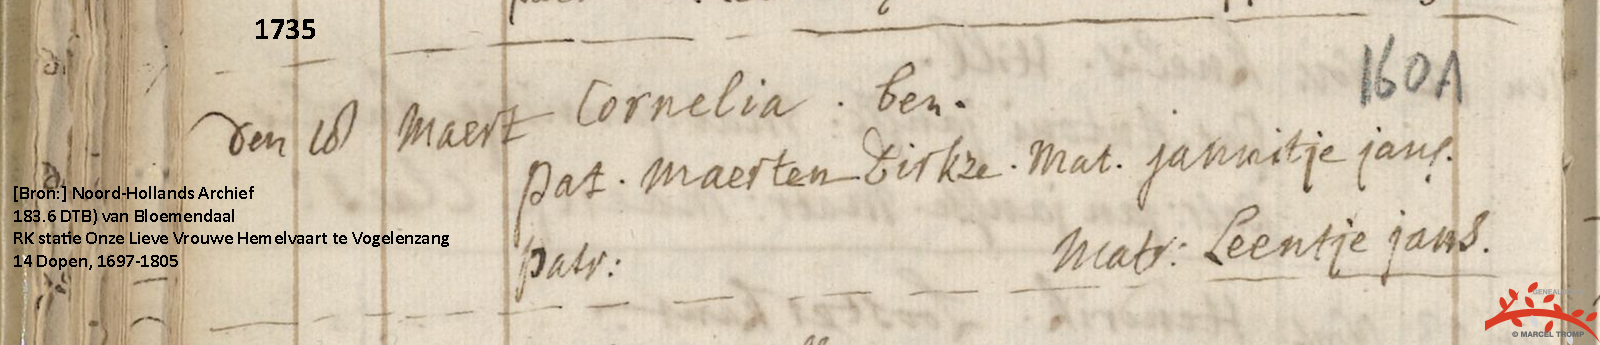 1735
160A
den 18 Maert Cornelia . ben.
pat. Maerten Dirkze. Mat. jannitje jans.
patr: Matr: Leentje jans.
[Bron:] Noord-Hollands Archief
183.6 DTB) van Bloemendaal
RK statie Onze Lieve Vrouwe Hemelvaart te Vogelenzang
14 Dopen, 1697-1805
© MARCEL TROMP